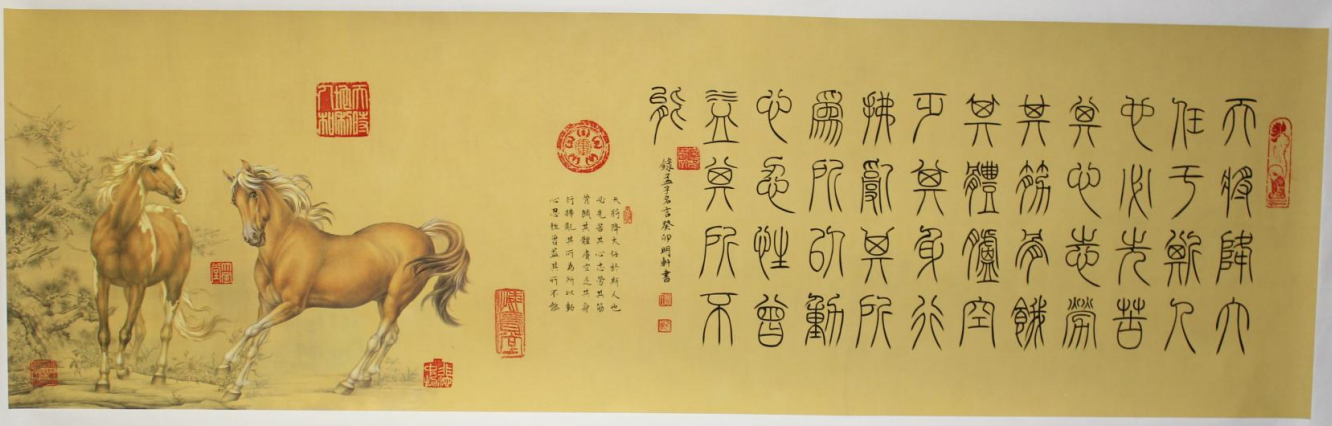 天將降大
任于斯人
也必先苦
其心志勞
其筋骨餓
其體膚空
乏其身行
拂亂其所
爲所以動
心忍性曾
益其所不
能
錄孟子名言癸卯明軒書
天將降大任於斯人也
必先苦其心志勞其筋
骨餓其體膚空乏其身
行拂亂其所為所以動
心忍性曾益其所不能
天時地利人和